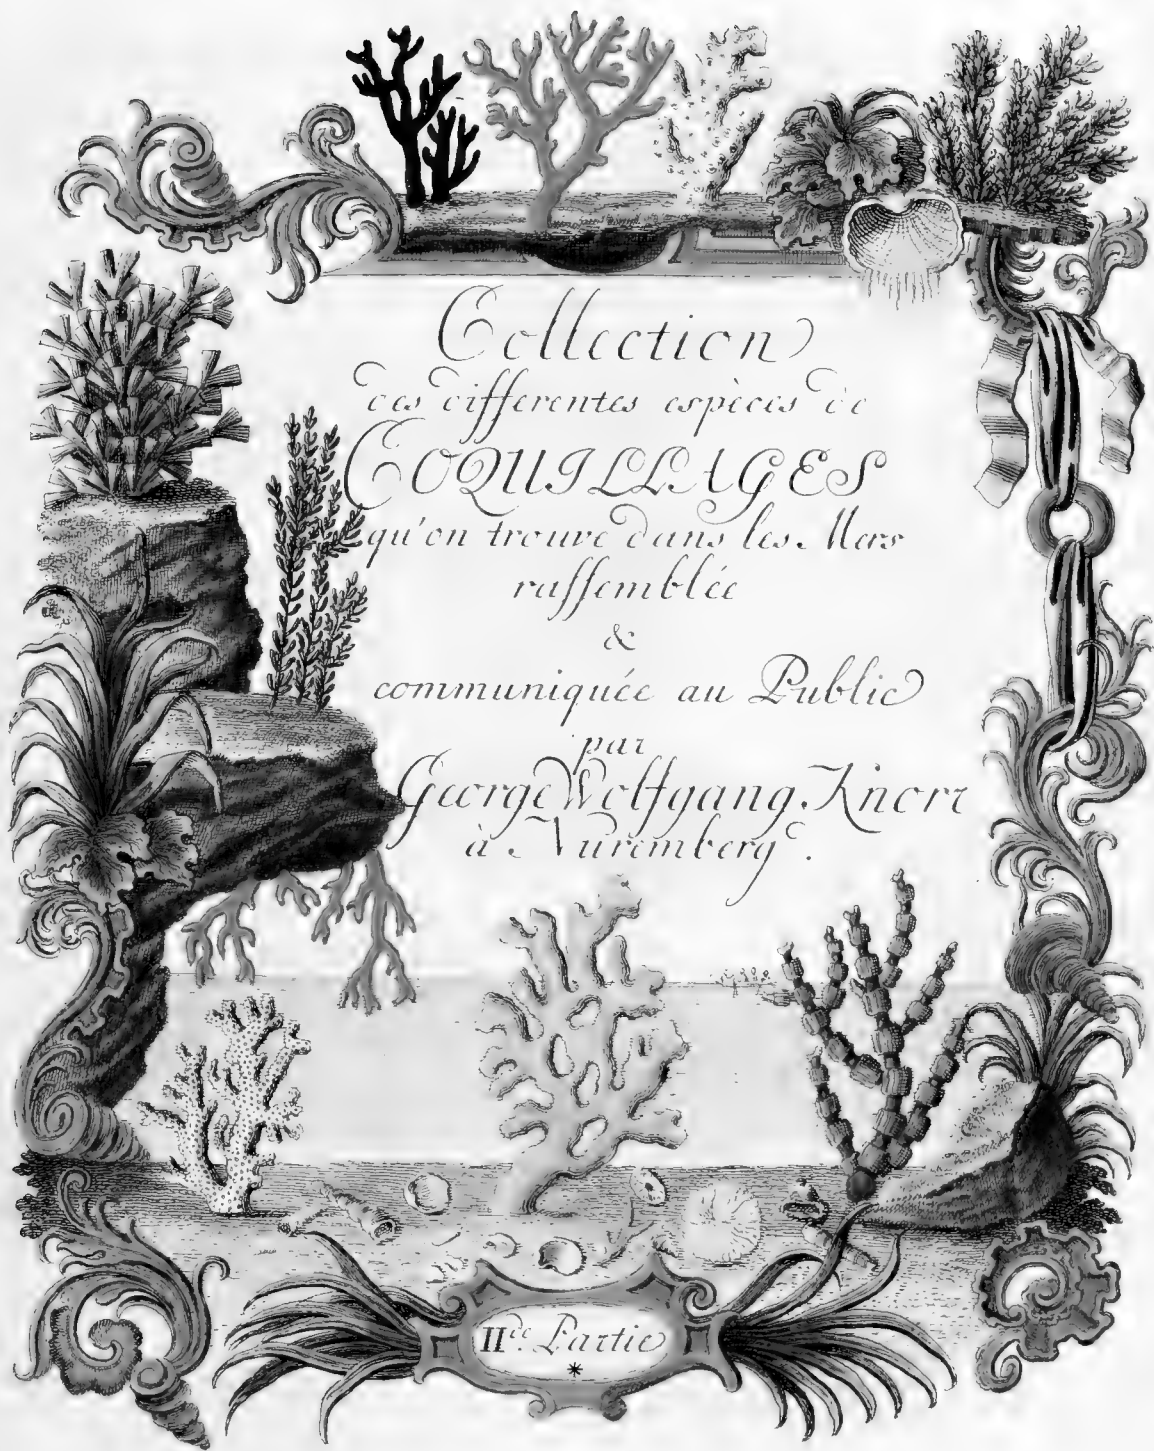 Collection
des differentes espèces de
COQUILLAGES
qu'on trouve dans les Mers
rassemblée
&
communiquée au Public
par
George Wolfgang Knorr
à Nuremberg.
II.de Partie
*